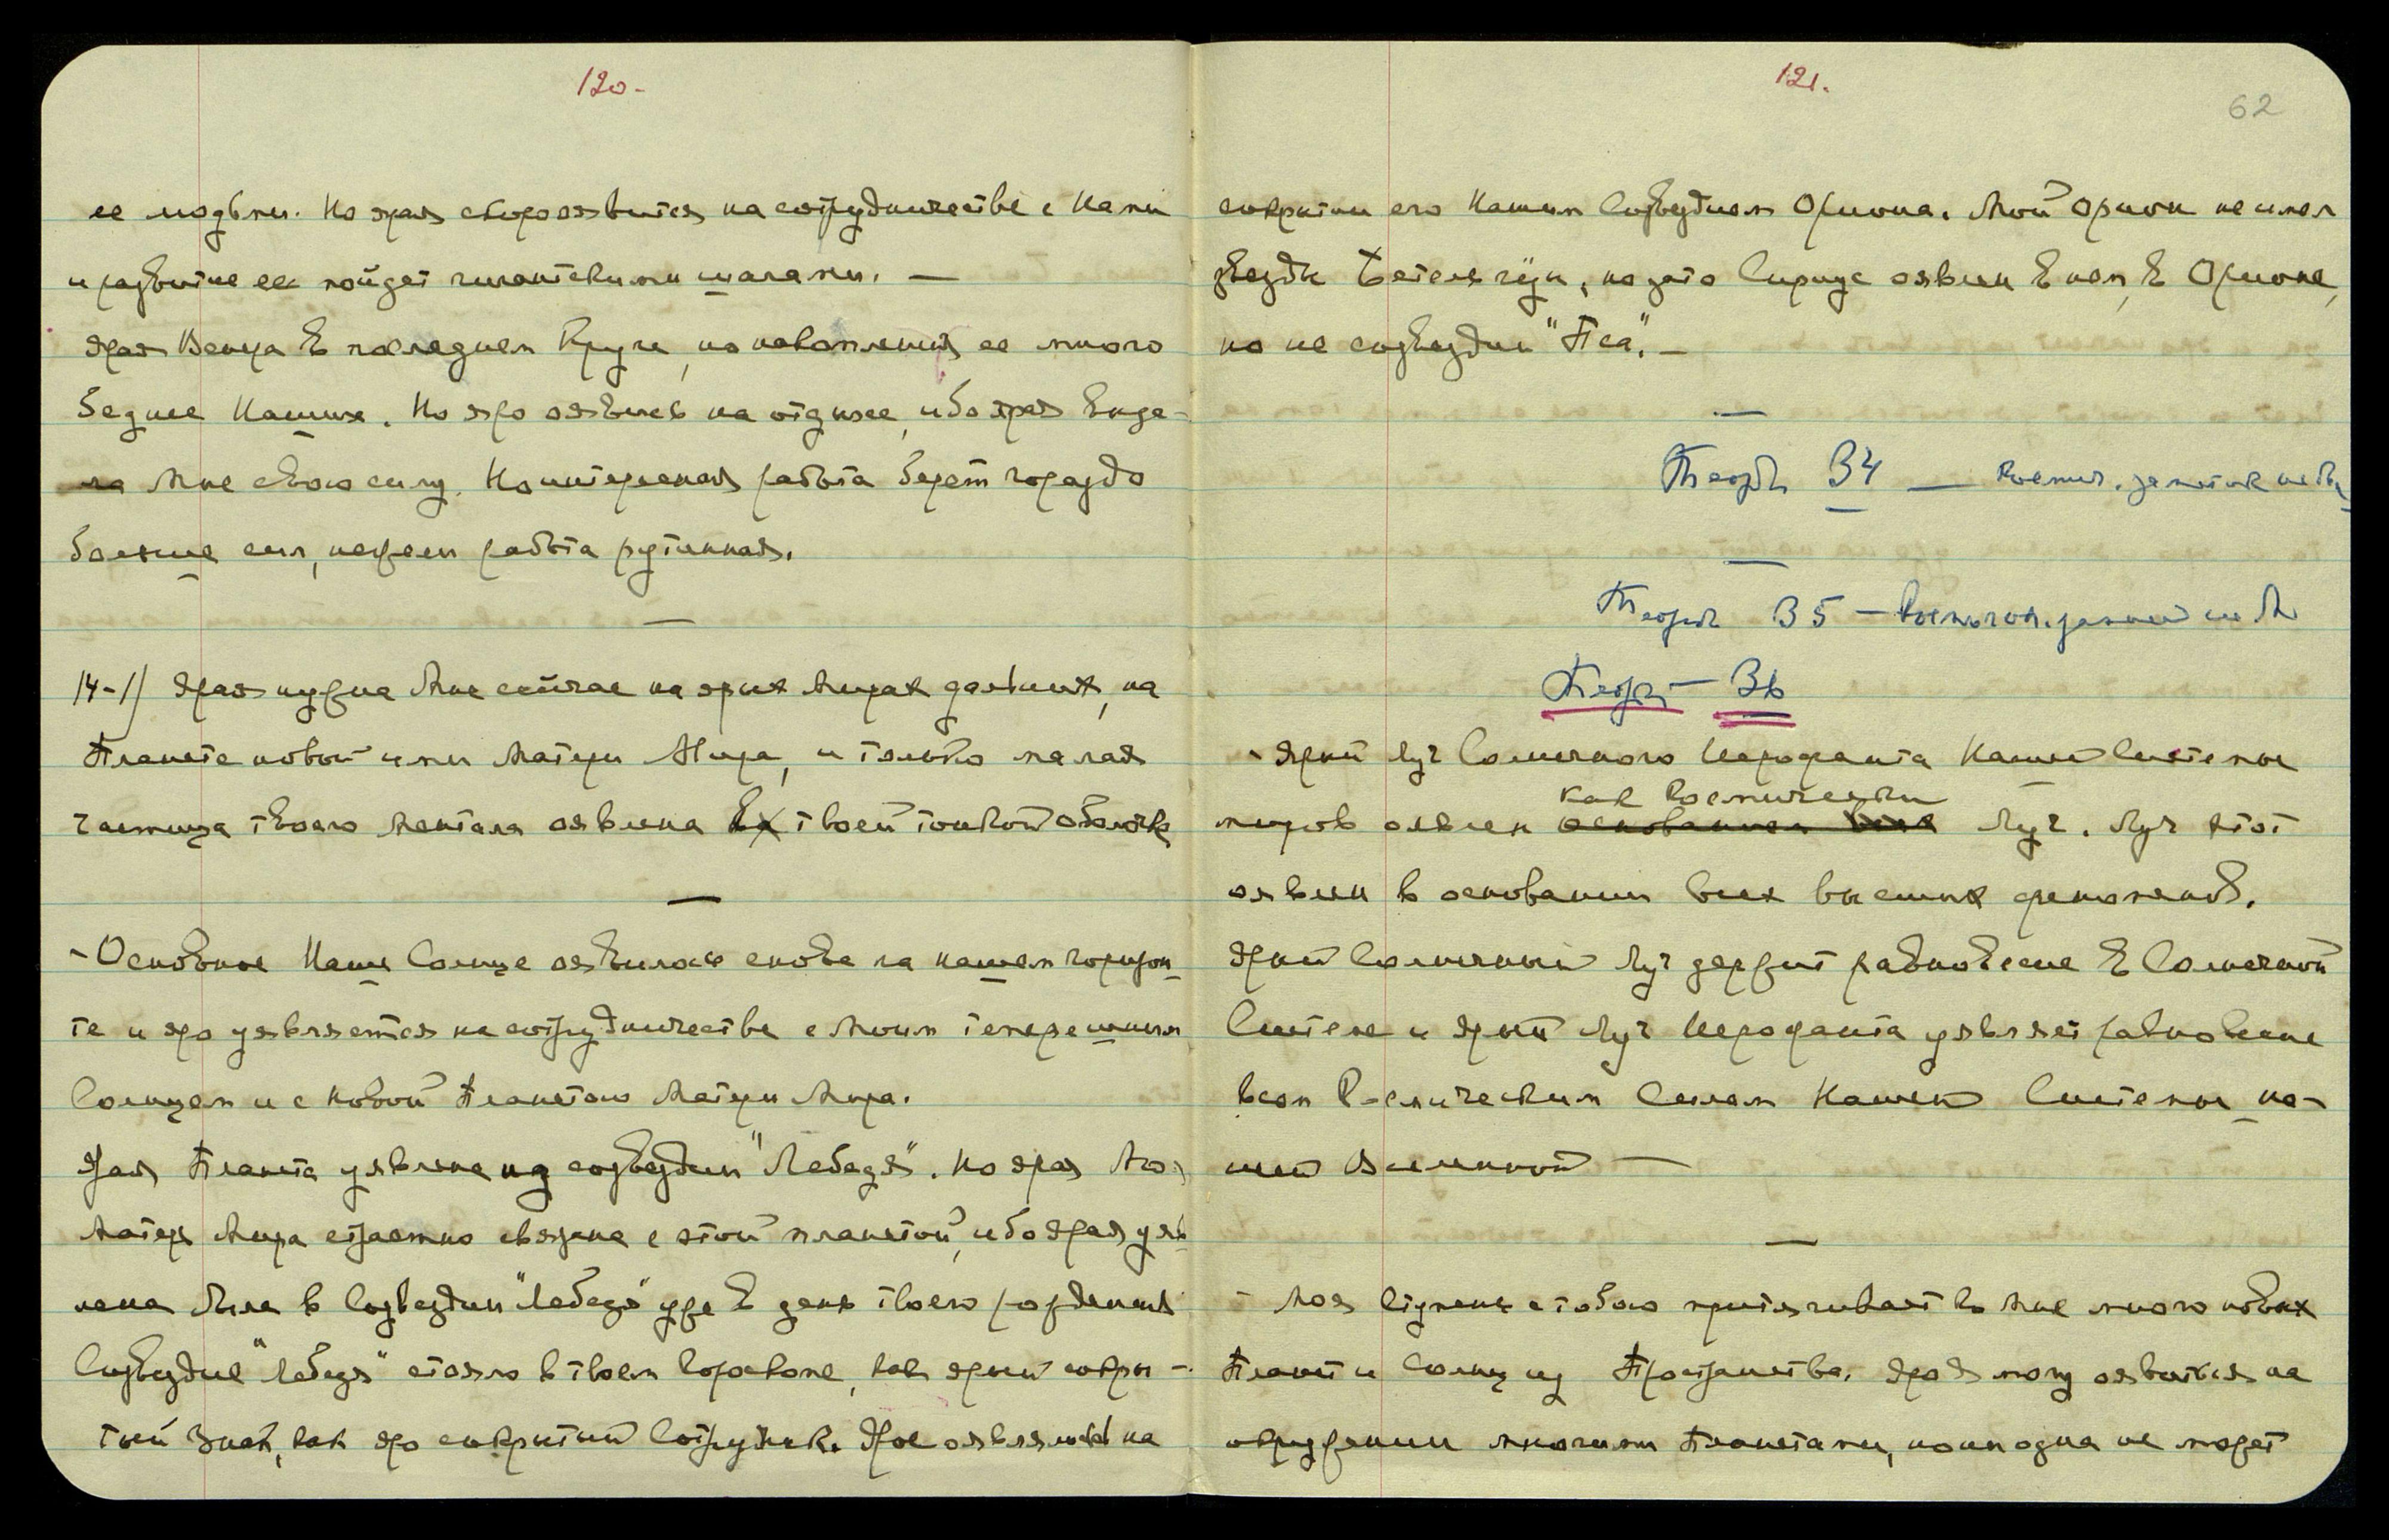 120.
ее людьми. Но ярая скоро оявится на сотрудничестве с Нами
и развитие ее пойдет гигантскими шагами. —
Ярая Венера в последнем Круге, но накопления ее много
беднее Наших. Но яро оявись на отдыхе, ибо ярая выде-
ла Мне свою силу. Но интересная работа берет гораздо
больше сил, нежели работа рутинная.
—
14-1/ Ярая нужна Мне сейчас на ярых Мирах дальних, на
Планете новой ими Матери Мира, и только малая
частица твоего Ментала оявлена в твоей тонкой оболочке
—
- Основное Наше Солнце оявилось снова на нашем горизон-
те и яро уявляется на сотрудничестве с Моим теперешним
Солнцем и с новой Планетою Матери Мира.
Ярая Планета уявлена из созвездия "Лебедя". Но ярая Моя
Матерь Мира страстно связана с этой планетой, ибо ярая уяв-
лена была в Созвездии "Лебедя" уже в день твоего рождения
Созвездие "Лебедя" стояло в твоем Гороскопе, как ярый сокры-
тый Знак, как яро сокрытый Сотрудник. Ярое оявлялось на
121.
62
сокрытии его Нашим Созвездием Ориона. Мой Орион не имел
звезды Бетельгейзе, но зато Сириус оявлен в нем, в Орионе,
но не созвездии "Пса". —
—
Тетрадь 34 — космич. заметок не
—
Тетрадь 35 —
Тетрадь — 36
- Ярый Луч Солнечного Иерофанта Нашей Системы
как Космический
миров оявлен основанием всех Луч. Луч этот
оявлен в основании всех высших феноменов.
Ярый Солнечный Луч держит равновесие в Солнечной
Системе и ярый Луч Иерофанта уявляет равновесие
всем Космическим Силам Нашей Системы на-
шей Вселенной —
—
- Моя Ступень с тобою притягивает ко Мне много новых
Планет и Солнц из Пространства. Яро Я могу оявиться на
окружении многими Планетами, но ни одна не может